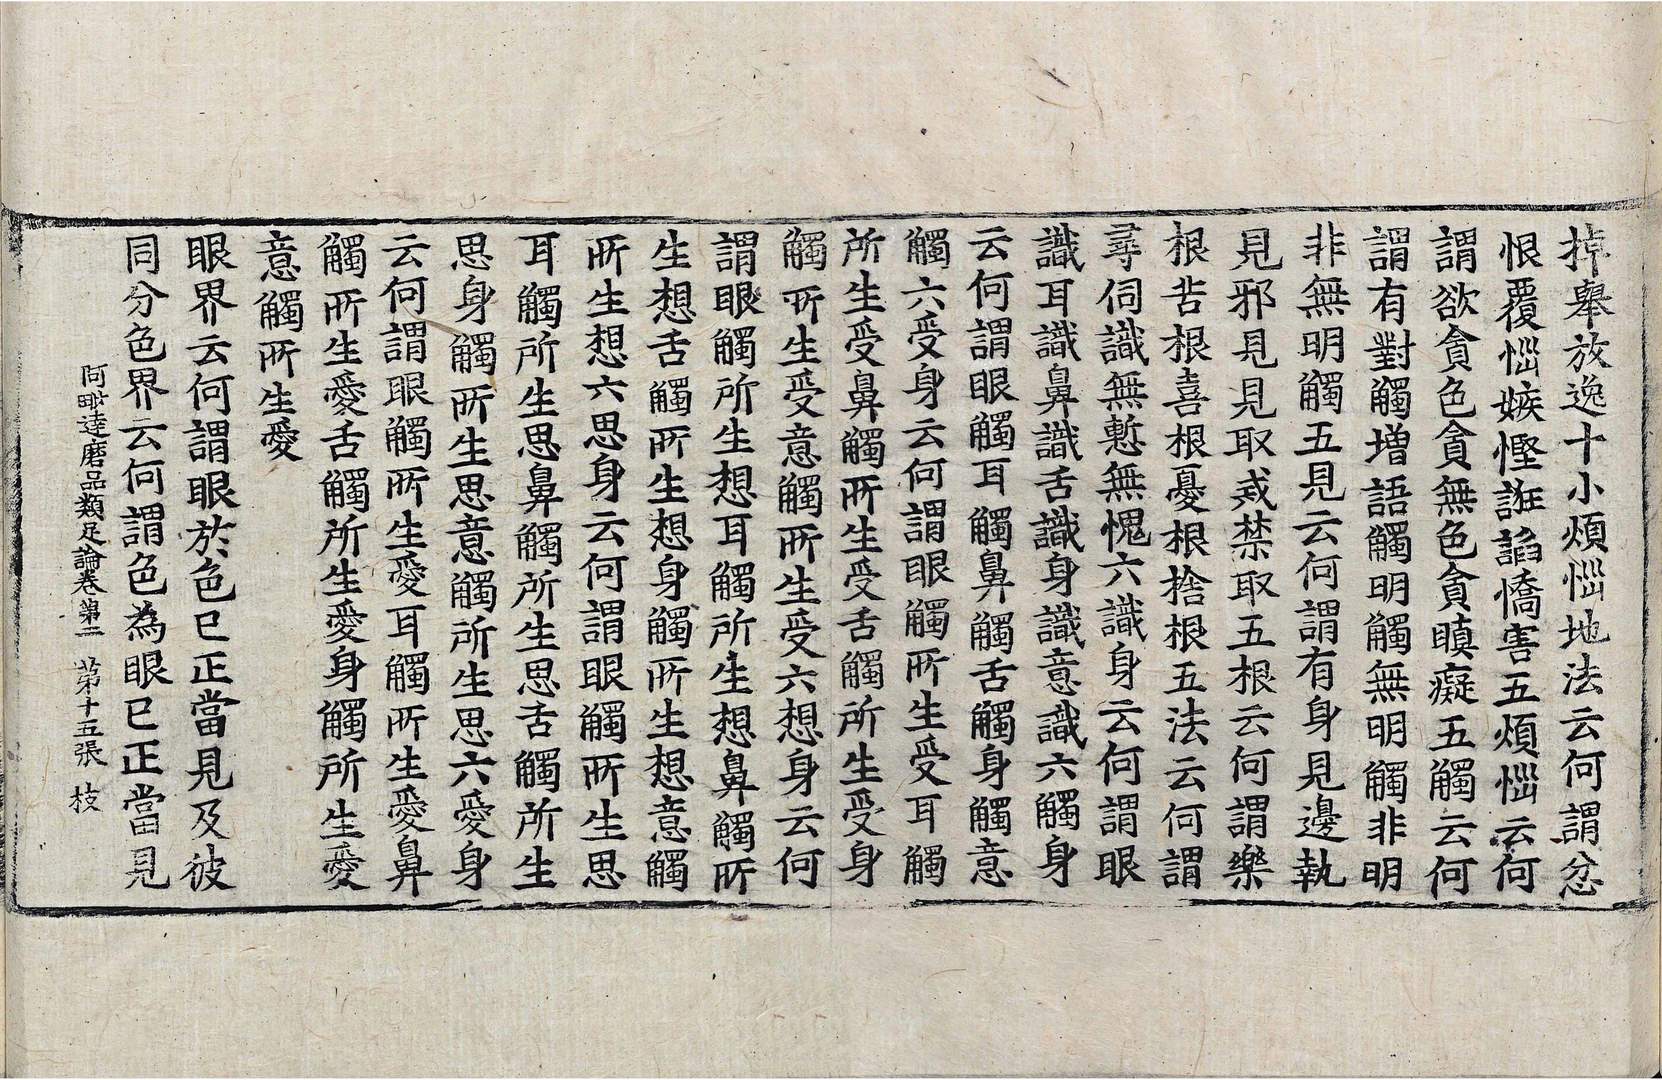 掉舉放逸十小煩惱地法云何謂忿
恨覆惱嫉慳誑諂憍害五煩惱云何
謂欲貪色貪無色貪瞋癡五觸云何
謂有對觸增語觸明觸無明觸非明
非無明觸五見云何謂有身見邊執
見邪見見取戒禁取五根云何謂樂
根苦根喜根憂根捨根五法云何謂
尋伺識無慙無愧六識身云何謂眼
識耳識鼻識舌識身識意識六觸身
云何謂眼觸耳觸鼻觸舌觸身觸意
觸六受身云何謂眼觸所生受耳觸
所生受鼻觸所生受舌觸所生受身
觸所生受意觸所生受六想身云何
謂眼觸所生想耳觸所生想鼻觸所
生想舌觸所生想身觸所生想意觸
所生想六思身云何謂眼觸所生思
耳觸所生思鼻觸所生思舌觸所生
思身觸所生思意觸所生思六愛身
云何謂眼觸所生愛耳觸所生愛鼻
觸所生愛舌觸所生愛身觸所生愛
意觸所生愛
眼界云何謂眼於色已正當見及彼
同分色界云何謂色為眼已正當見
阿毗達磨品類足論卷第二 第十五張 枝